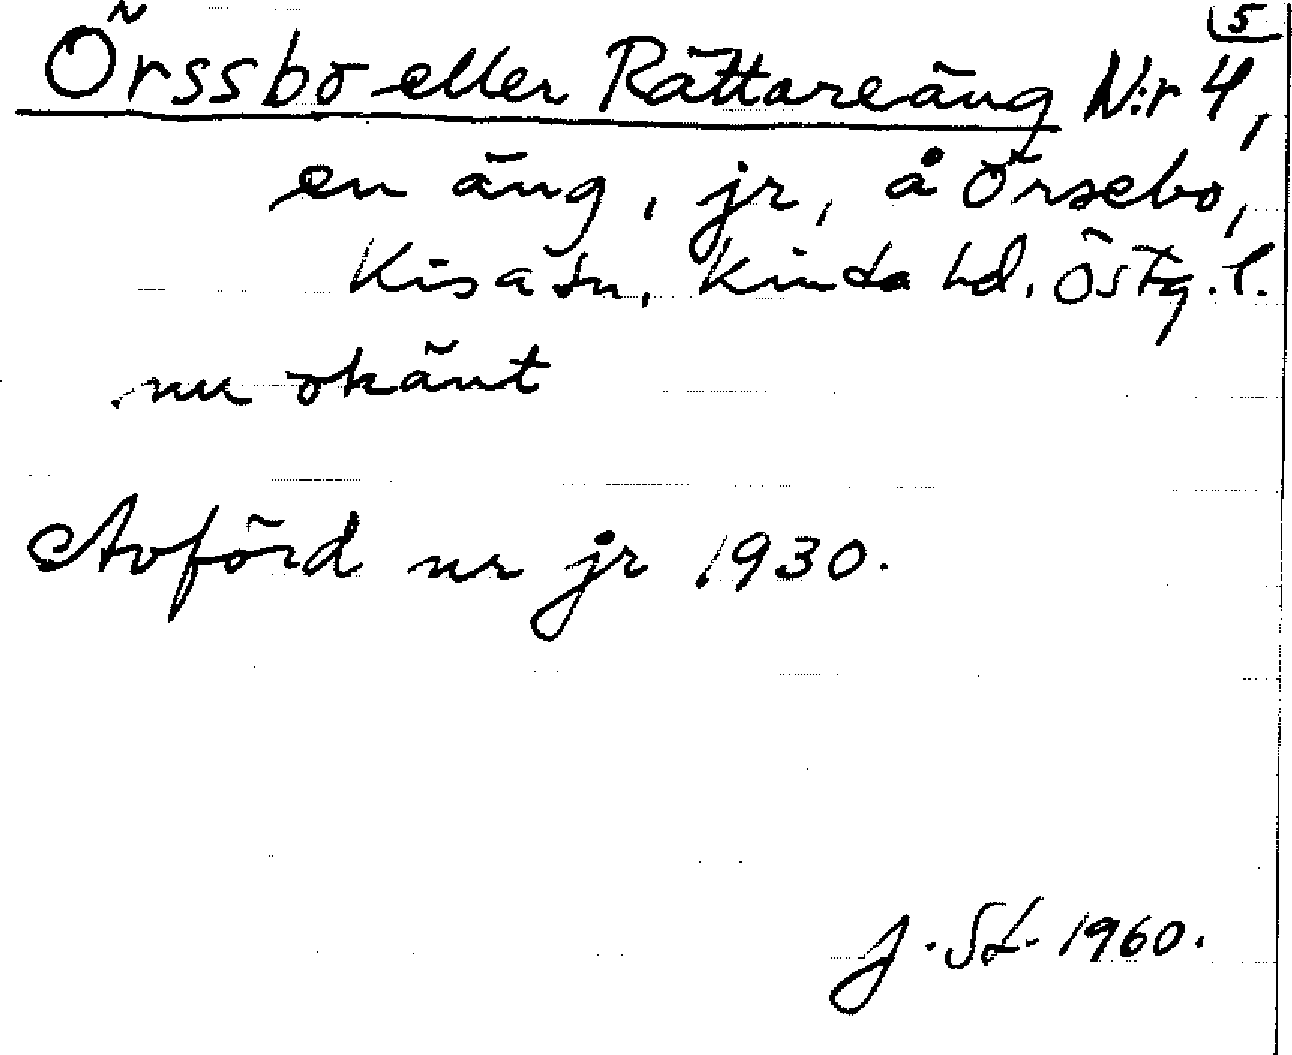 5
Örssbo eller Rättareäng N:r 4,
en äng, jr, å Örsebo,
Kisa sn, Kinda hd. Östg. l.
nu okänt
Avförd ur jr 1930.
J. St. 1960.